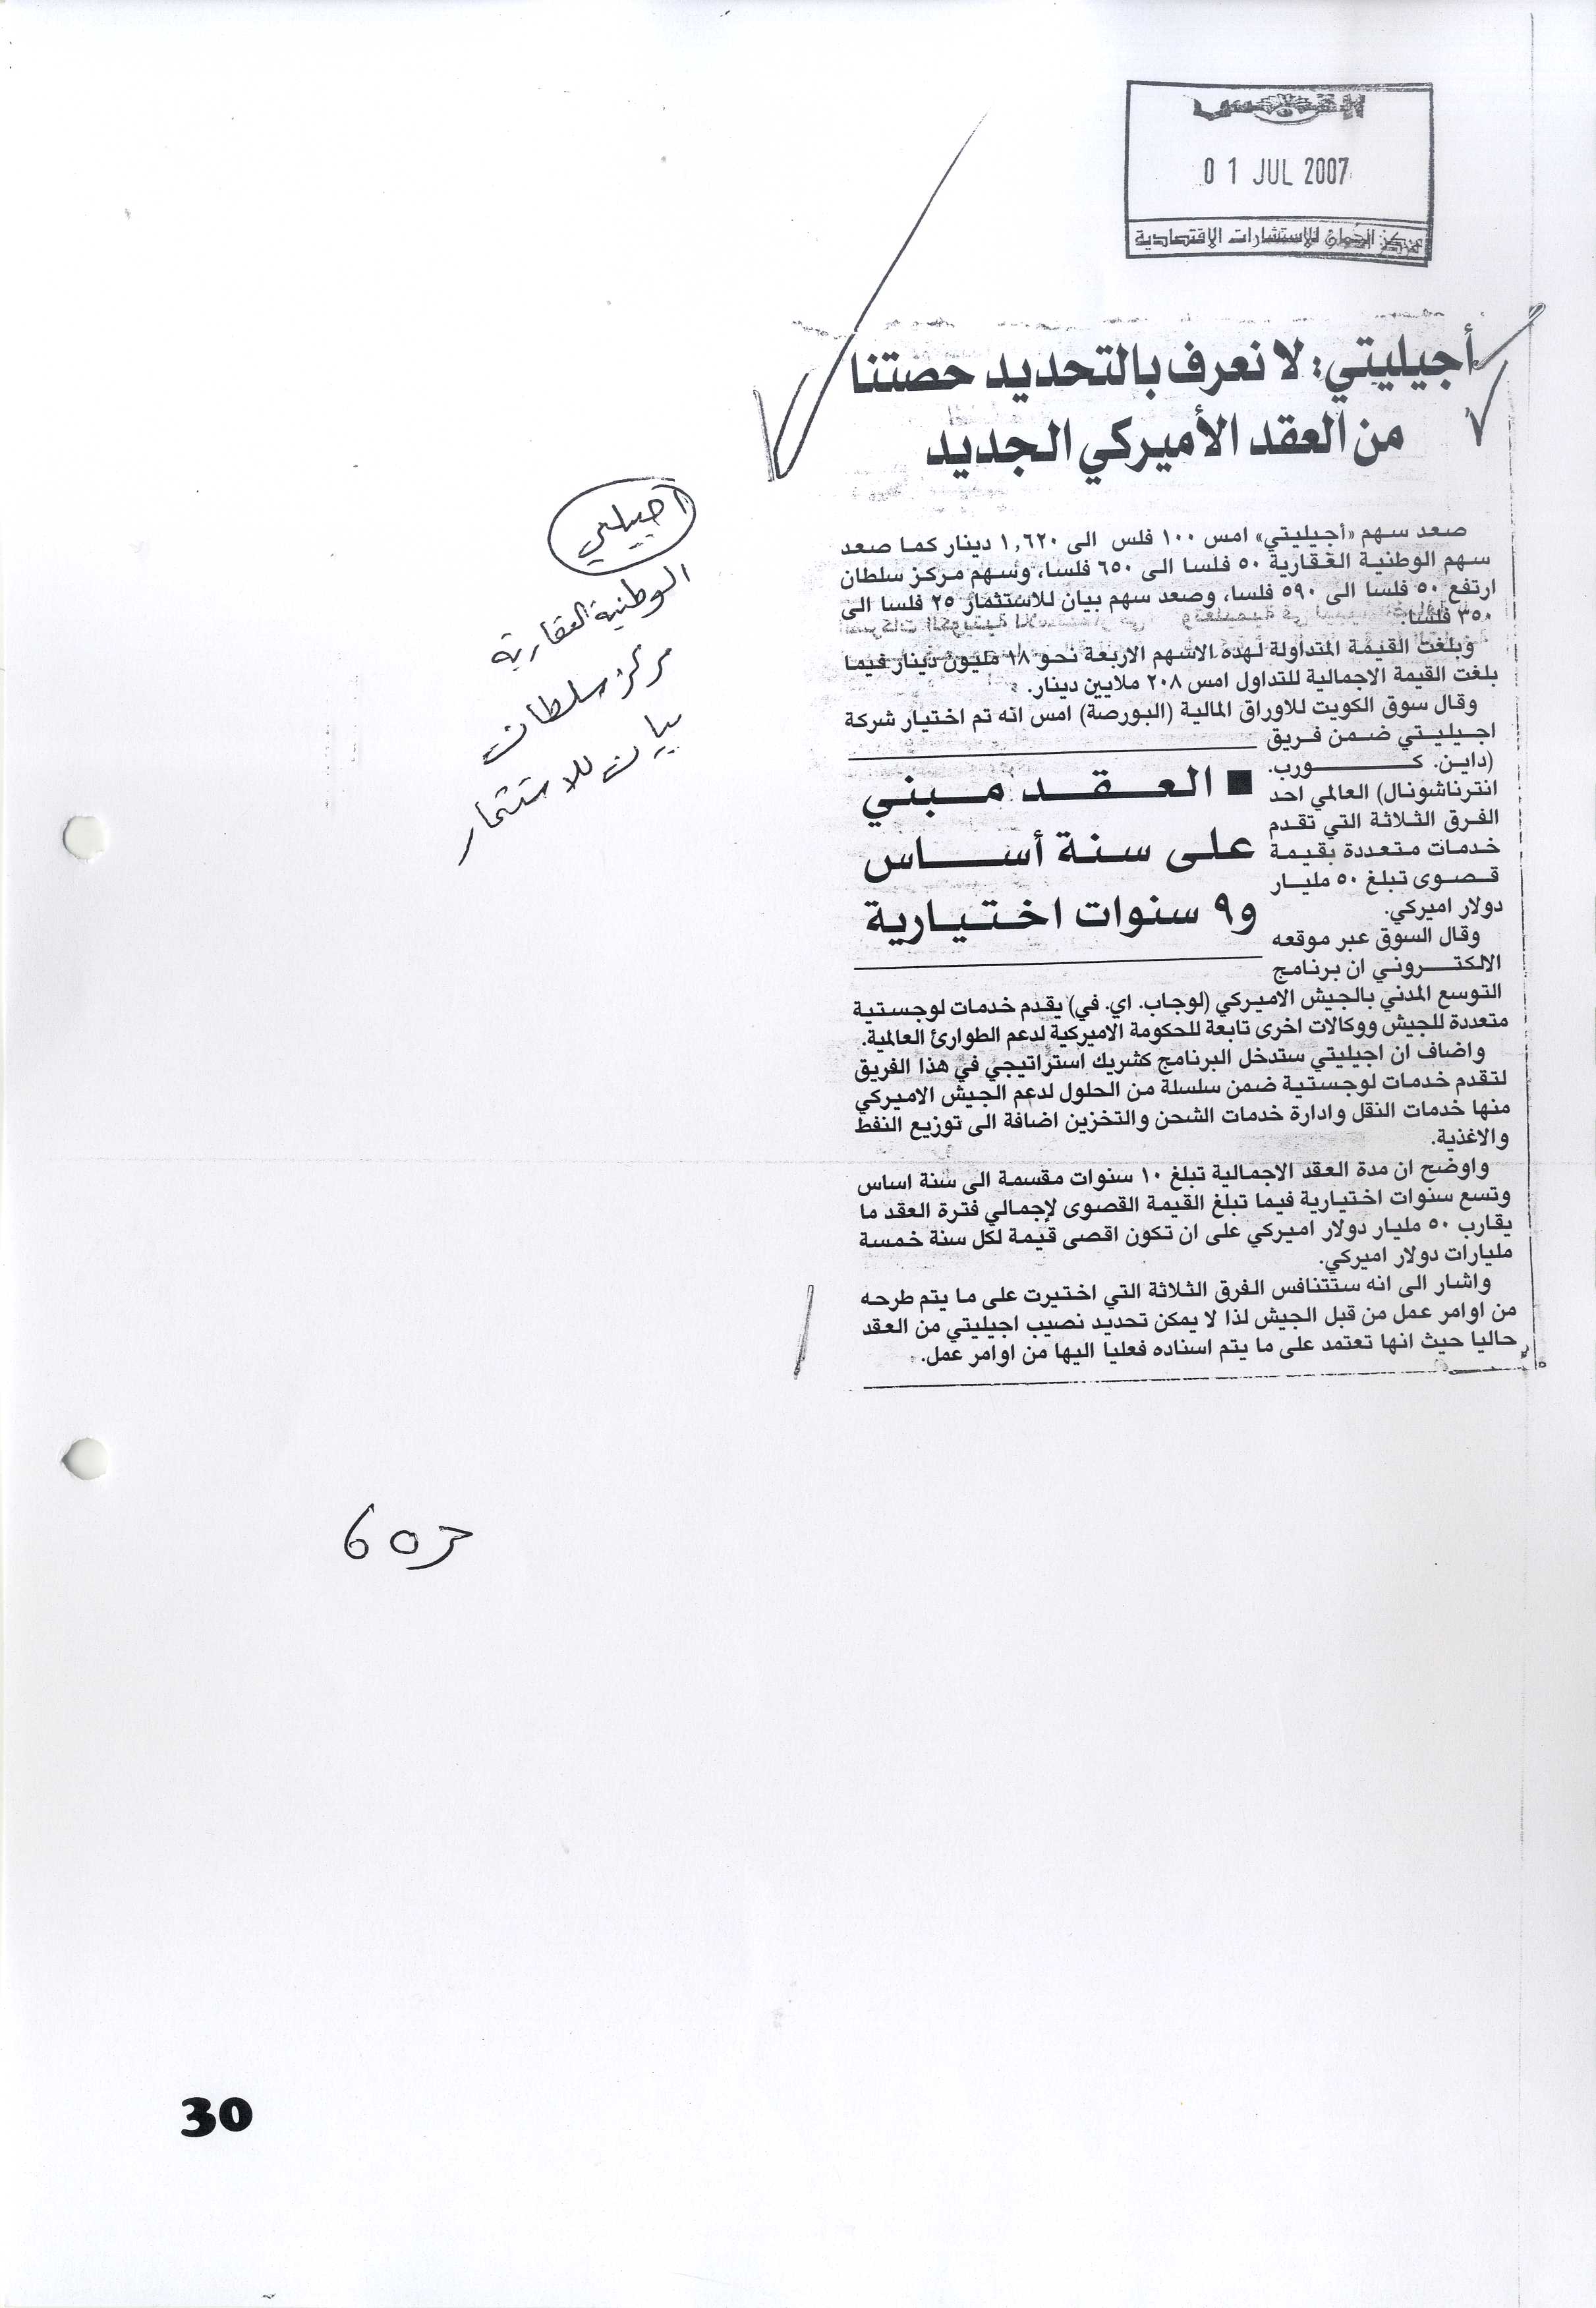 القبس
01 JUL 2007
مركز الجمان للاستشارات الاقتصادية
أجيليتي: لا نعرف بالتحديد حصتنا
من العقد الأميركي الجديد
اجيليتي
الوطنية العقارية
مركز سلطان
بيان للاستثمار
صعد سهم «أجيليتي» امس ١٠٠ فلس الى ١,٦٢٠ دينار كما صعد
سهم الوطنية العقارية ٥٠ فلسا الى ٦٥٠ فلسا، وسهم مركز سلطان
ارتفع ٥٠ فلسا الى ٥٩٠ فلسا، وصعد سهم بيان للاستثمار ٢٥ فلسا الى
٣٥٠ فلسا.
وبلغت القيمة المتداولة لهذه الاسهم الاربعة نحو ١٨ مليون دينار فيما
بلغت القيمة الاجمالية للتداول امس ٢٠٨ ملايين دينار.
وقال سوق الكويت للاوراق المالية (البورصة) امس انه تم اختيار شركة
اجيليتي ضمن فريق
(داين. كورب.
انترناشونال) العالمي احد
الفرق الثلاثة التي تقدم
خدمات متعددة بقيمة
قصوى تبلغ ٥٠ مليار
دولار اميركي.
■ العقد مبني
على سنة أساس
و٩ سنوات اختيارية
وقال السوق عبر موقعه
الالكتروني ان برنامج
التوسع المدني بالجيش الاميركي (لوجاب. اي. في) يقدم خدمات لوجستية
متعددة للجيش ووكالات اخرى تابعة للحكومة الاميركية لدعم الطوارئ العالمية.
واضاف ان اجيليتي ستدخل البرنامج كشريك استراتيجي في هذا الفريق
لتقدم خدمات لوجستية ضمن سلسلة من الحلول لدعم الجيش الاميركي
منها خدمات النقل وادارة خدمات الشحن والتخزين اضافة الى توزيع النفط
والاغذية.
واوضح ان مدة العقد الاجمالية تبلغ ١٠ سنوات مقسمة الى سنة اساس
وتسع سنوات اختيارية فيما تبلغ القيمة القصوى لإجمالي فترة العقد ما
يقارب ٥٠ مليار دولار اميركي على ان تكون اقصى قيمة لكل سنة خمسة
مليارات دولار اميركي.
واشار الى انه ستتنافس الفرق الثلاثة التي اختيرت على ما يتم طرحه
من اوامر عمل من قبل الجيش لذا لا يمكن تحديد نصيب اجيليتي من العقد
حاليا حيث انها تعتمد على ما يتم اسناده فعليا اليها من اوامر عمل.
603
30